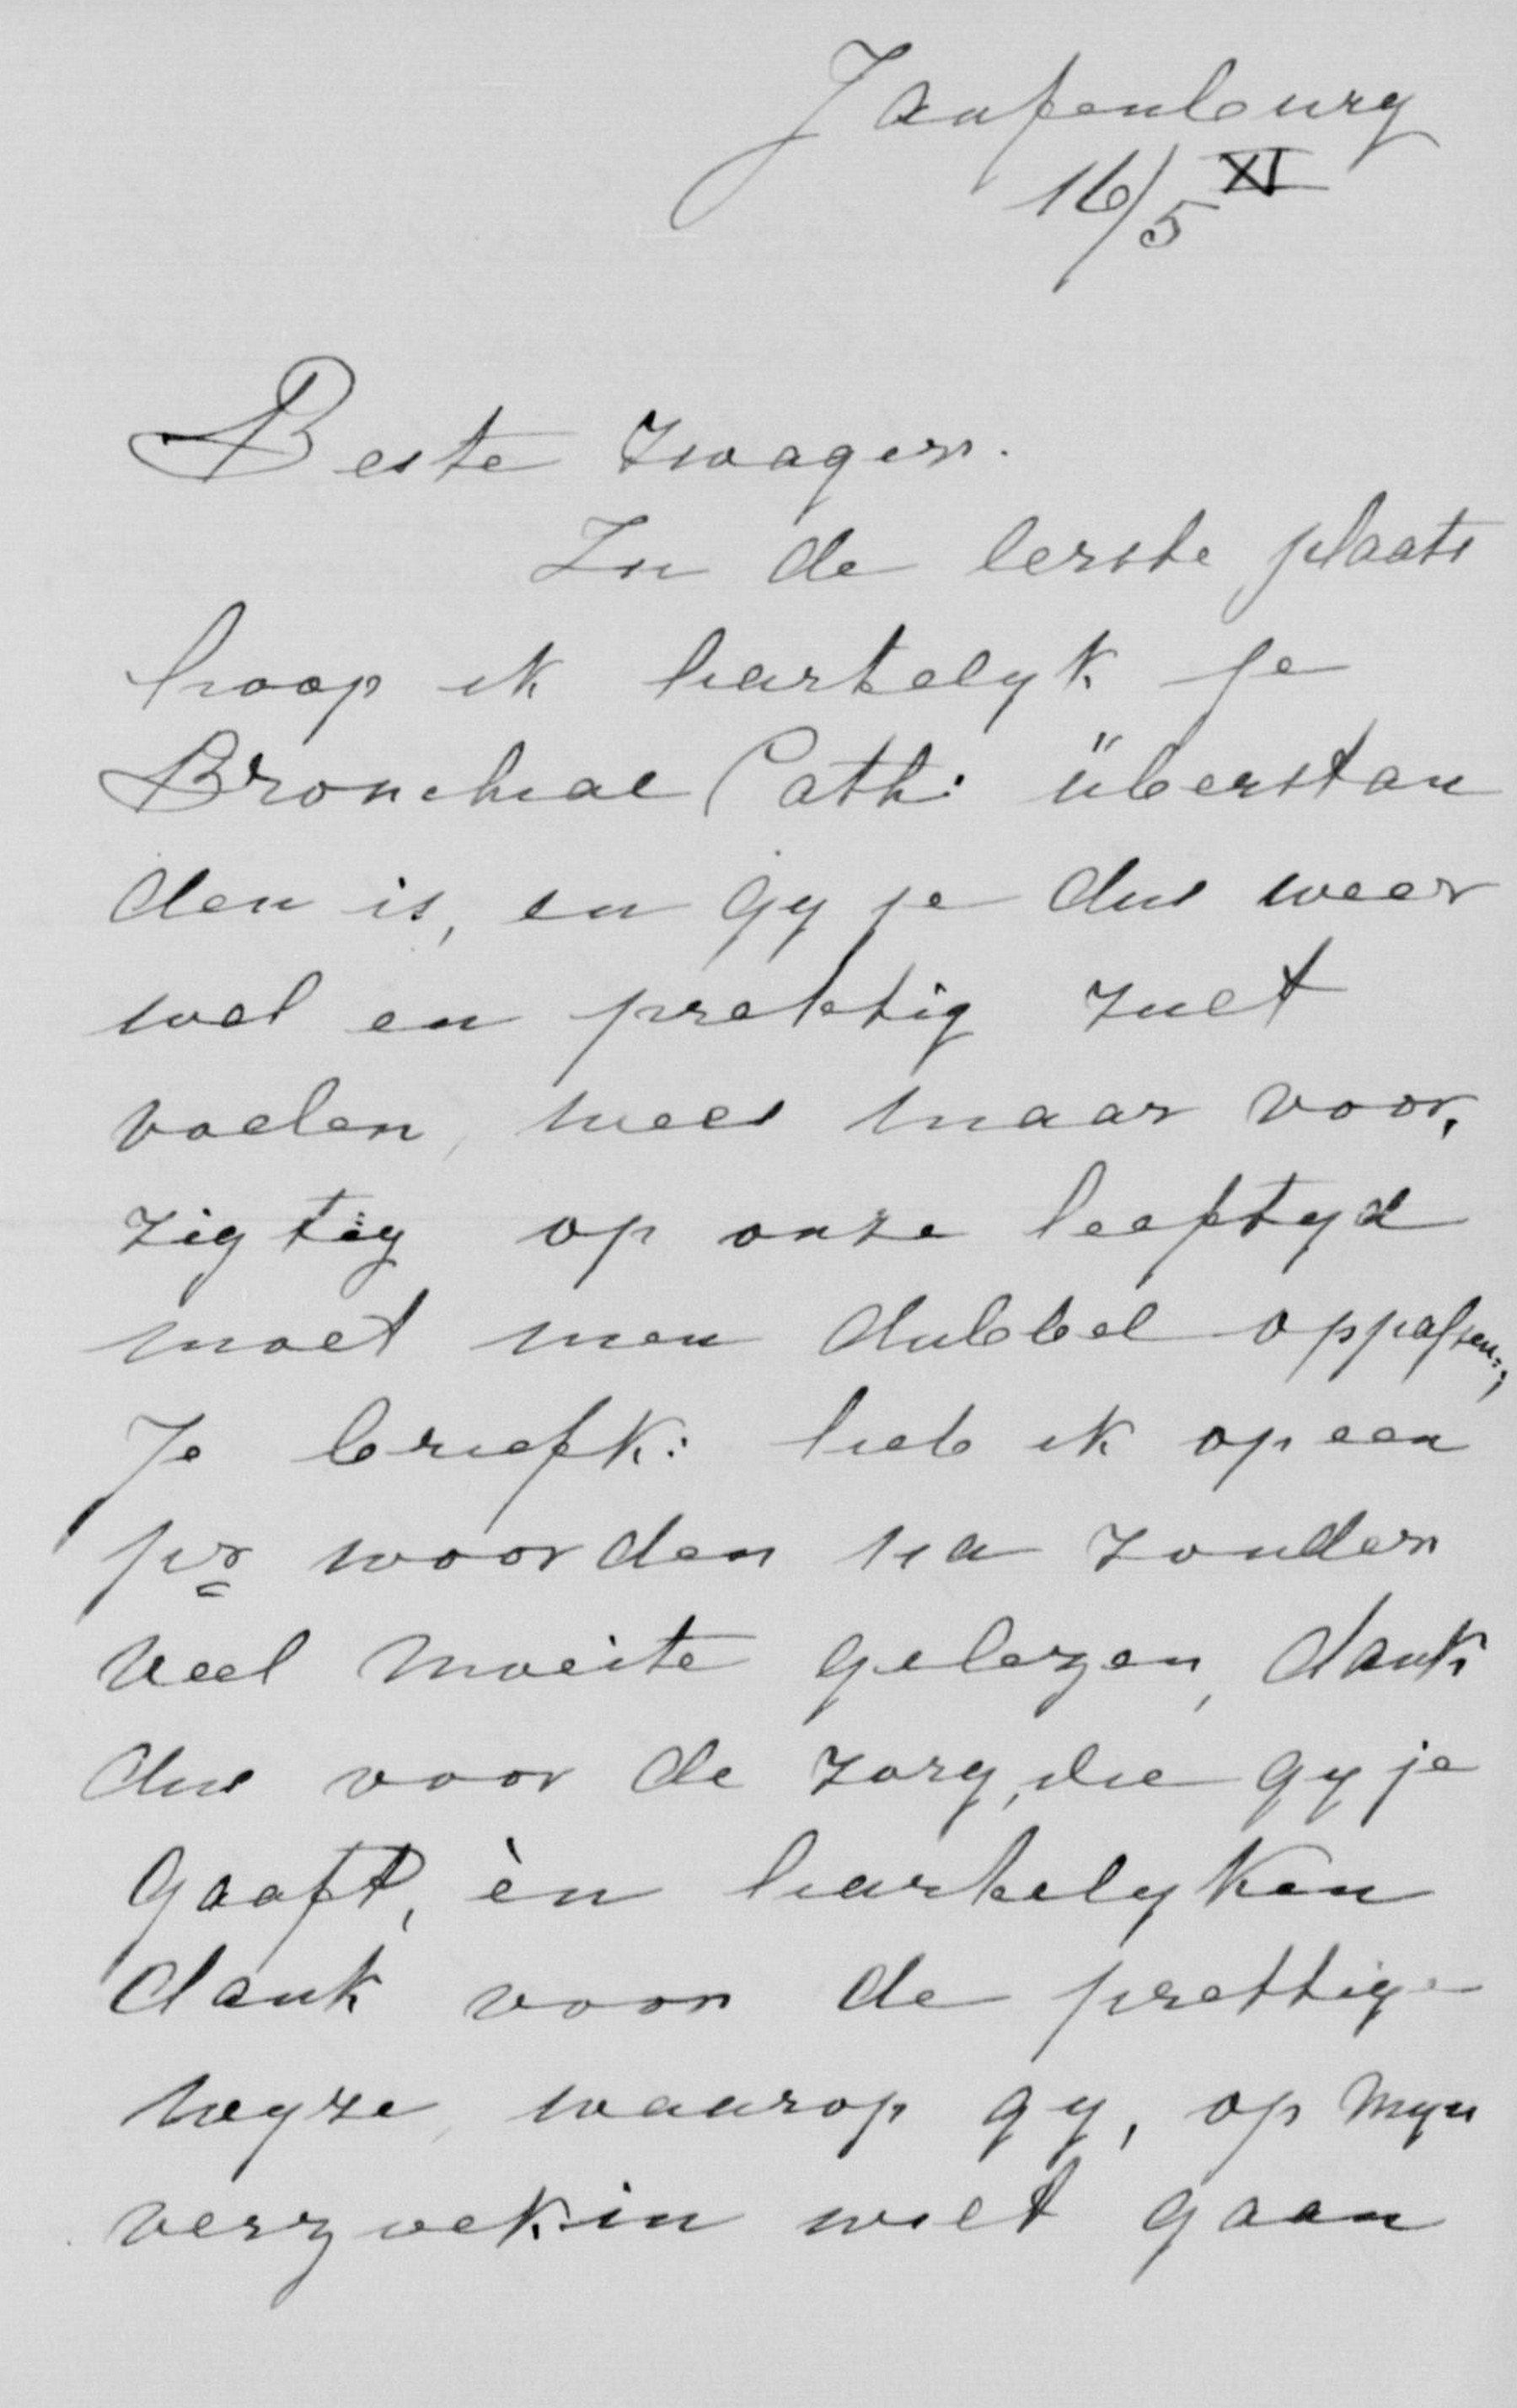 Jaufenburg
16/5 XI
Beste Zwager.
In de eerste plaats
hoop ik hartelyk je
Bronchial Cath: überstan
den is, en gy je dus weer
wel en prettig zult
voelen, wees maar voor,
zigtig op onze leeftyd
moet men dubbel oppassen:,
Je briefk: heb ik op een
pr woorden na zonder
veel moeite gelezen, dank
dus voor de zorg, die gy je
gaaft, èn hartelyken
dank voor de prettige
wyze, waarop gy, op myn
verzoek in wilt gaan